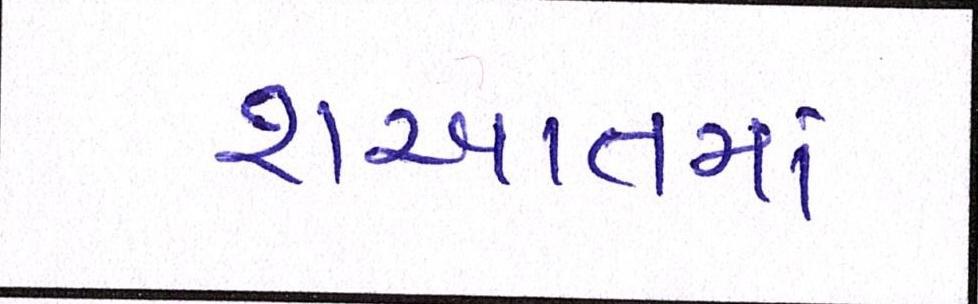 શઆતમાં